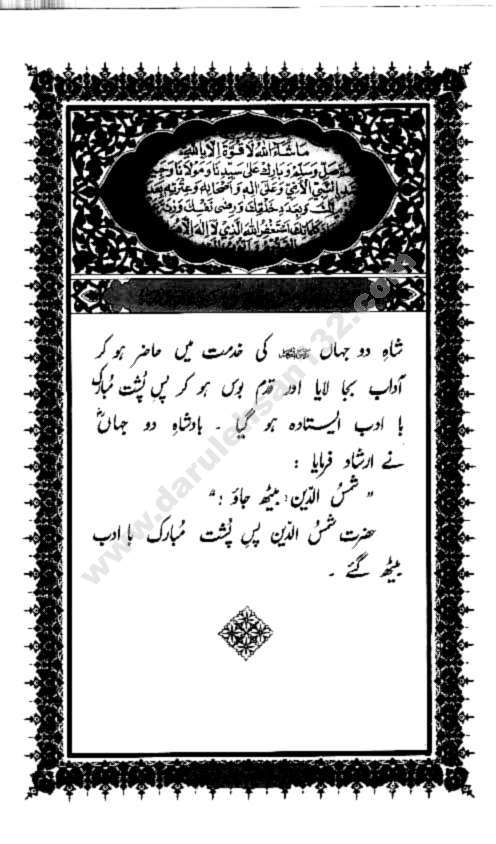 ماشاء الله لا قوة الا بالله
صل وسلم وبارك على سيدنا ومولانا
النبي الامي وعلى اله واصحابه وعترته بعدد
وبعدد خلقك ورضى نفسك وزنة
كلماتك استغفر الله الذي لا اله الا
شاہِ دو جہاں ﷺ کی خدمت میں حاضر ہو کر
آداب بجا لایا اور قدم بوس ہو کر پسِ پُشت مُبارک
با ادب ایستادہ ہو گیا ۔ بادشاہِ دو جہاںؐ
نے ارشاد فرمایا :
" شمسُ الدّین! بیٹھ جاؤ ! "
حضرت شمسُ الدّین پسِ پُشت مُبارک با ادب
بیٹھ گئے ۔
www.darulehsan132.com